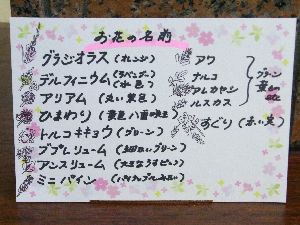 お花の名前
グラジオラス (オレンジ)
デルフィニウム (ラベンダー 水色)
アリアム (丸い 紫色)
ひまわり (黄色 八重咲き)
トルコキキョウ (グリーン)
ブプレリューム (細かいグリーン)
アンスリューム (大きなうすピンク)
ミニパイン
アワ
ナルコ
アレカヤシ
ルスカス
グリーン
すぐり (赤い実)